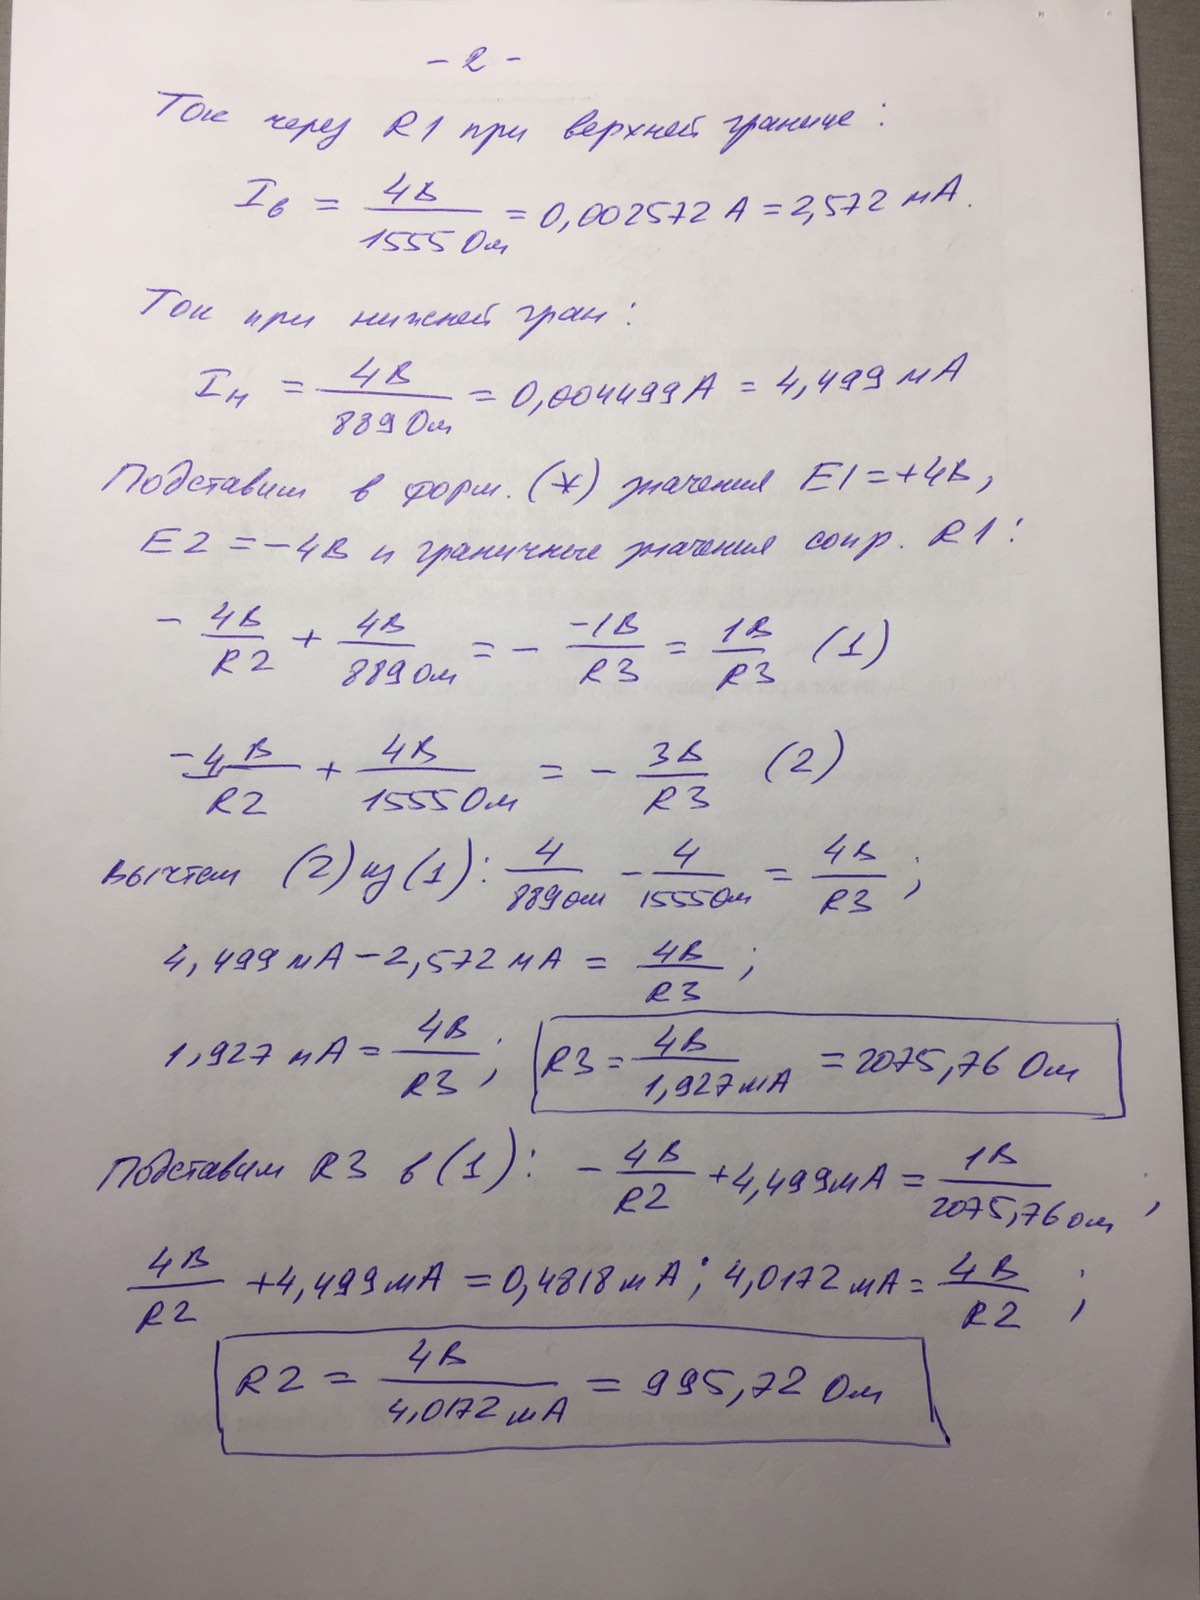 - 2 -
Ток через R1 при верхней границе:
Iв = 4В / 1555 Ом = 0,002572 А = 2,572 мА.
Ток при нижней гран:
Iн = 4В / 889 Ом = 0,004499 А = 4,499 мА
Подставим в форм. (*) значения E1 = +4В,
E2 = -4В и граничные значения сопр. R1:
- 4В / R2 + 4В / 889 Ом = - -1В / R3 = 1В / R3 (1)
-4В / R2 + 4В / 1555 Ом = - 3В / R3 (2)
Вычтем (2) из (1): 4 / 889 Ом - 4 / 1555 Ом = 4В / R3;
4,499 мА - 2,572 мА = 4В / R3;
1,927 мА = 4В / R3; R3 = 4В / 1,927 мА = 2075,76 Ом
Подставим R3 в (1): - 4В / R2 + 4,499 мА = 1В / 2075,76 Ом;
4В / R2 + 4,499 мА = 0,4818 мА; 4,0172 мА = 4В / R2;
R2 = 4В / 4,0172 мА = 995,72 Ом